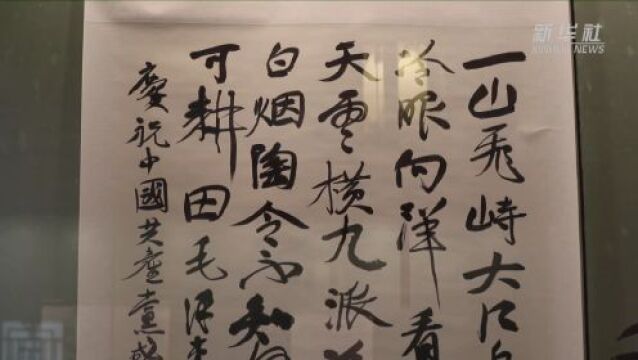 新华社
XINHUA NEWS
一山飛峙大江
冷眼向洋看
天雲横九派
白烟陶令不知
可耕田毛泽东
慶祝中國共產黨